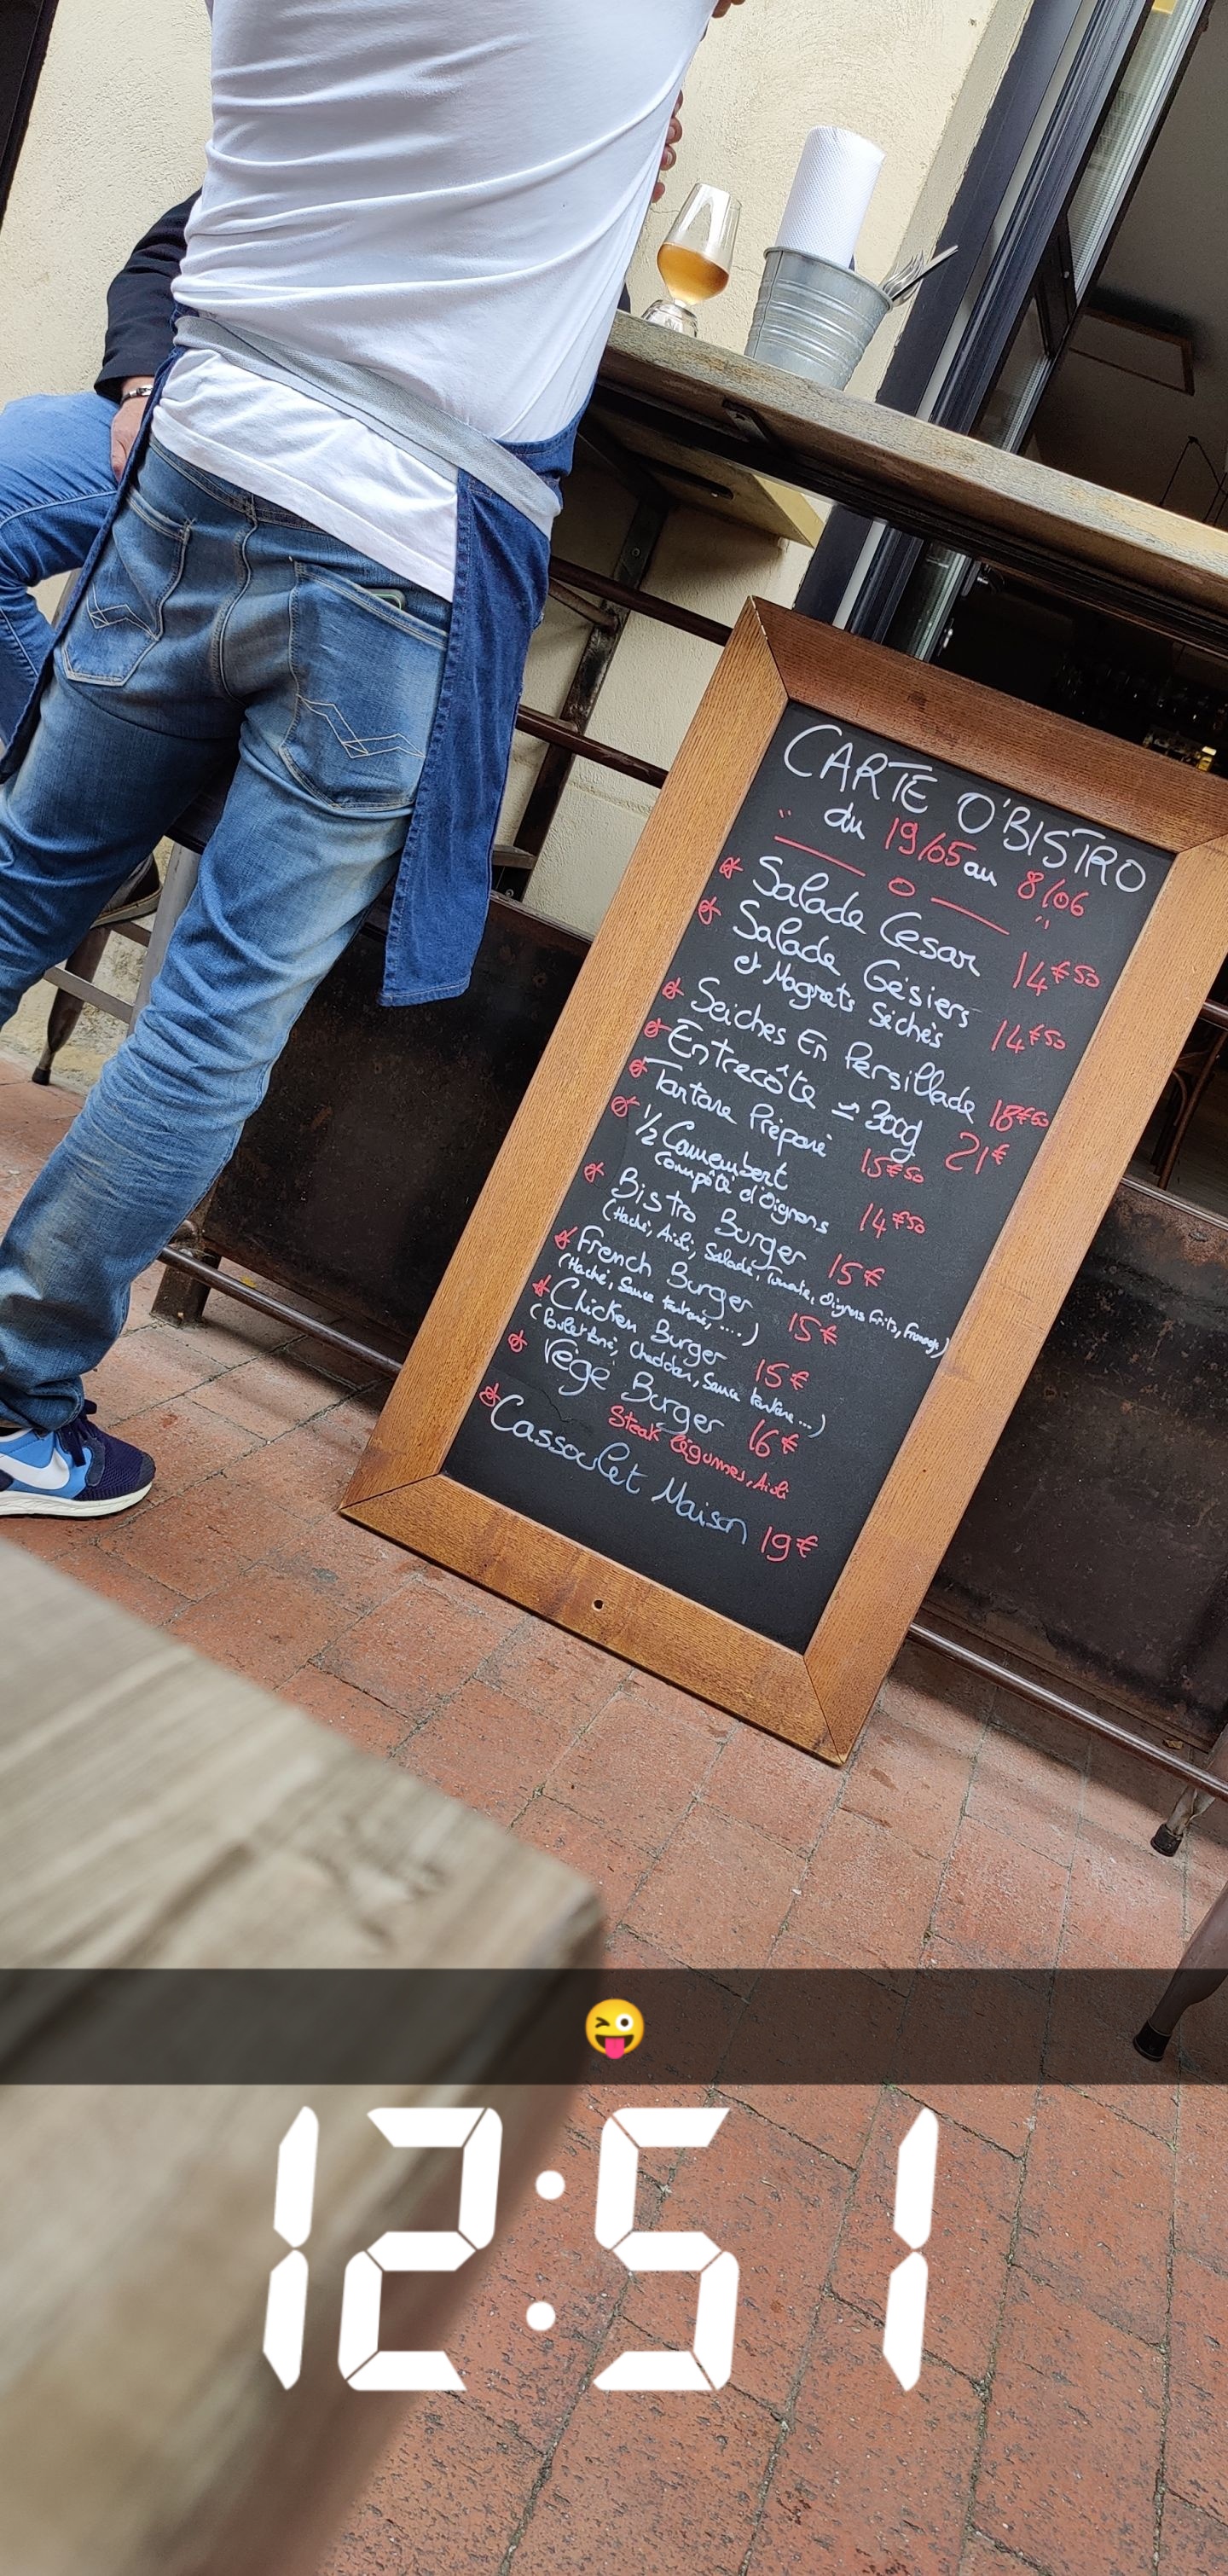 CARTE O'BISTRO
" du 19/05 au 8/06 "
Salade Cesar 14€50
Salade Gésiers
et Magrets Séchés 14€50
Seiches En Persillade 18€50
Entrecôte ≃ 300g 21€
Tartare Préparé 15€50
1/2 Camembert
Compôté d'Oignons 14€50
Bistro Burger 15€
(Haché, Aïoli, Salade, Tomate, Oignons frits, fromage)
French Burger 15€
(Haché, Sauce tartare, ....)
Chicken Burger 15€
(Poulet pané, Cheddar, Sauce tartare...)
Végé Burger 16€
Steak légumes, Aïoli
Cassoulet Maison 19€
😜
12:51